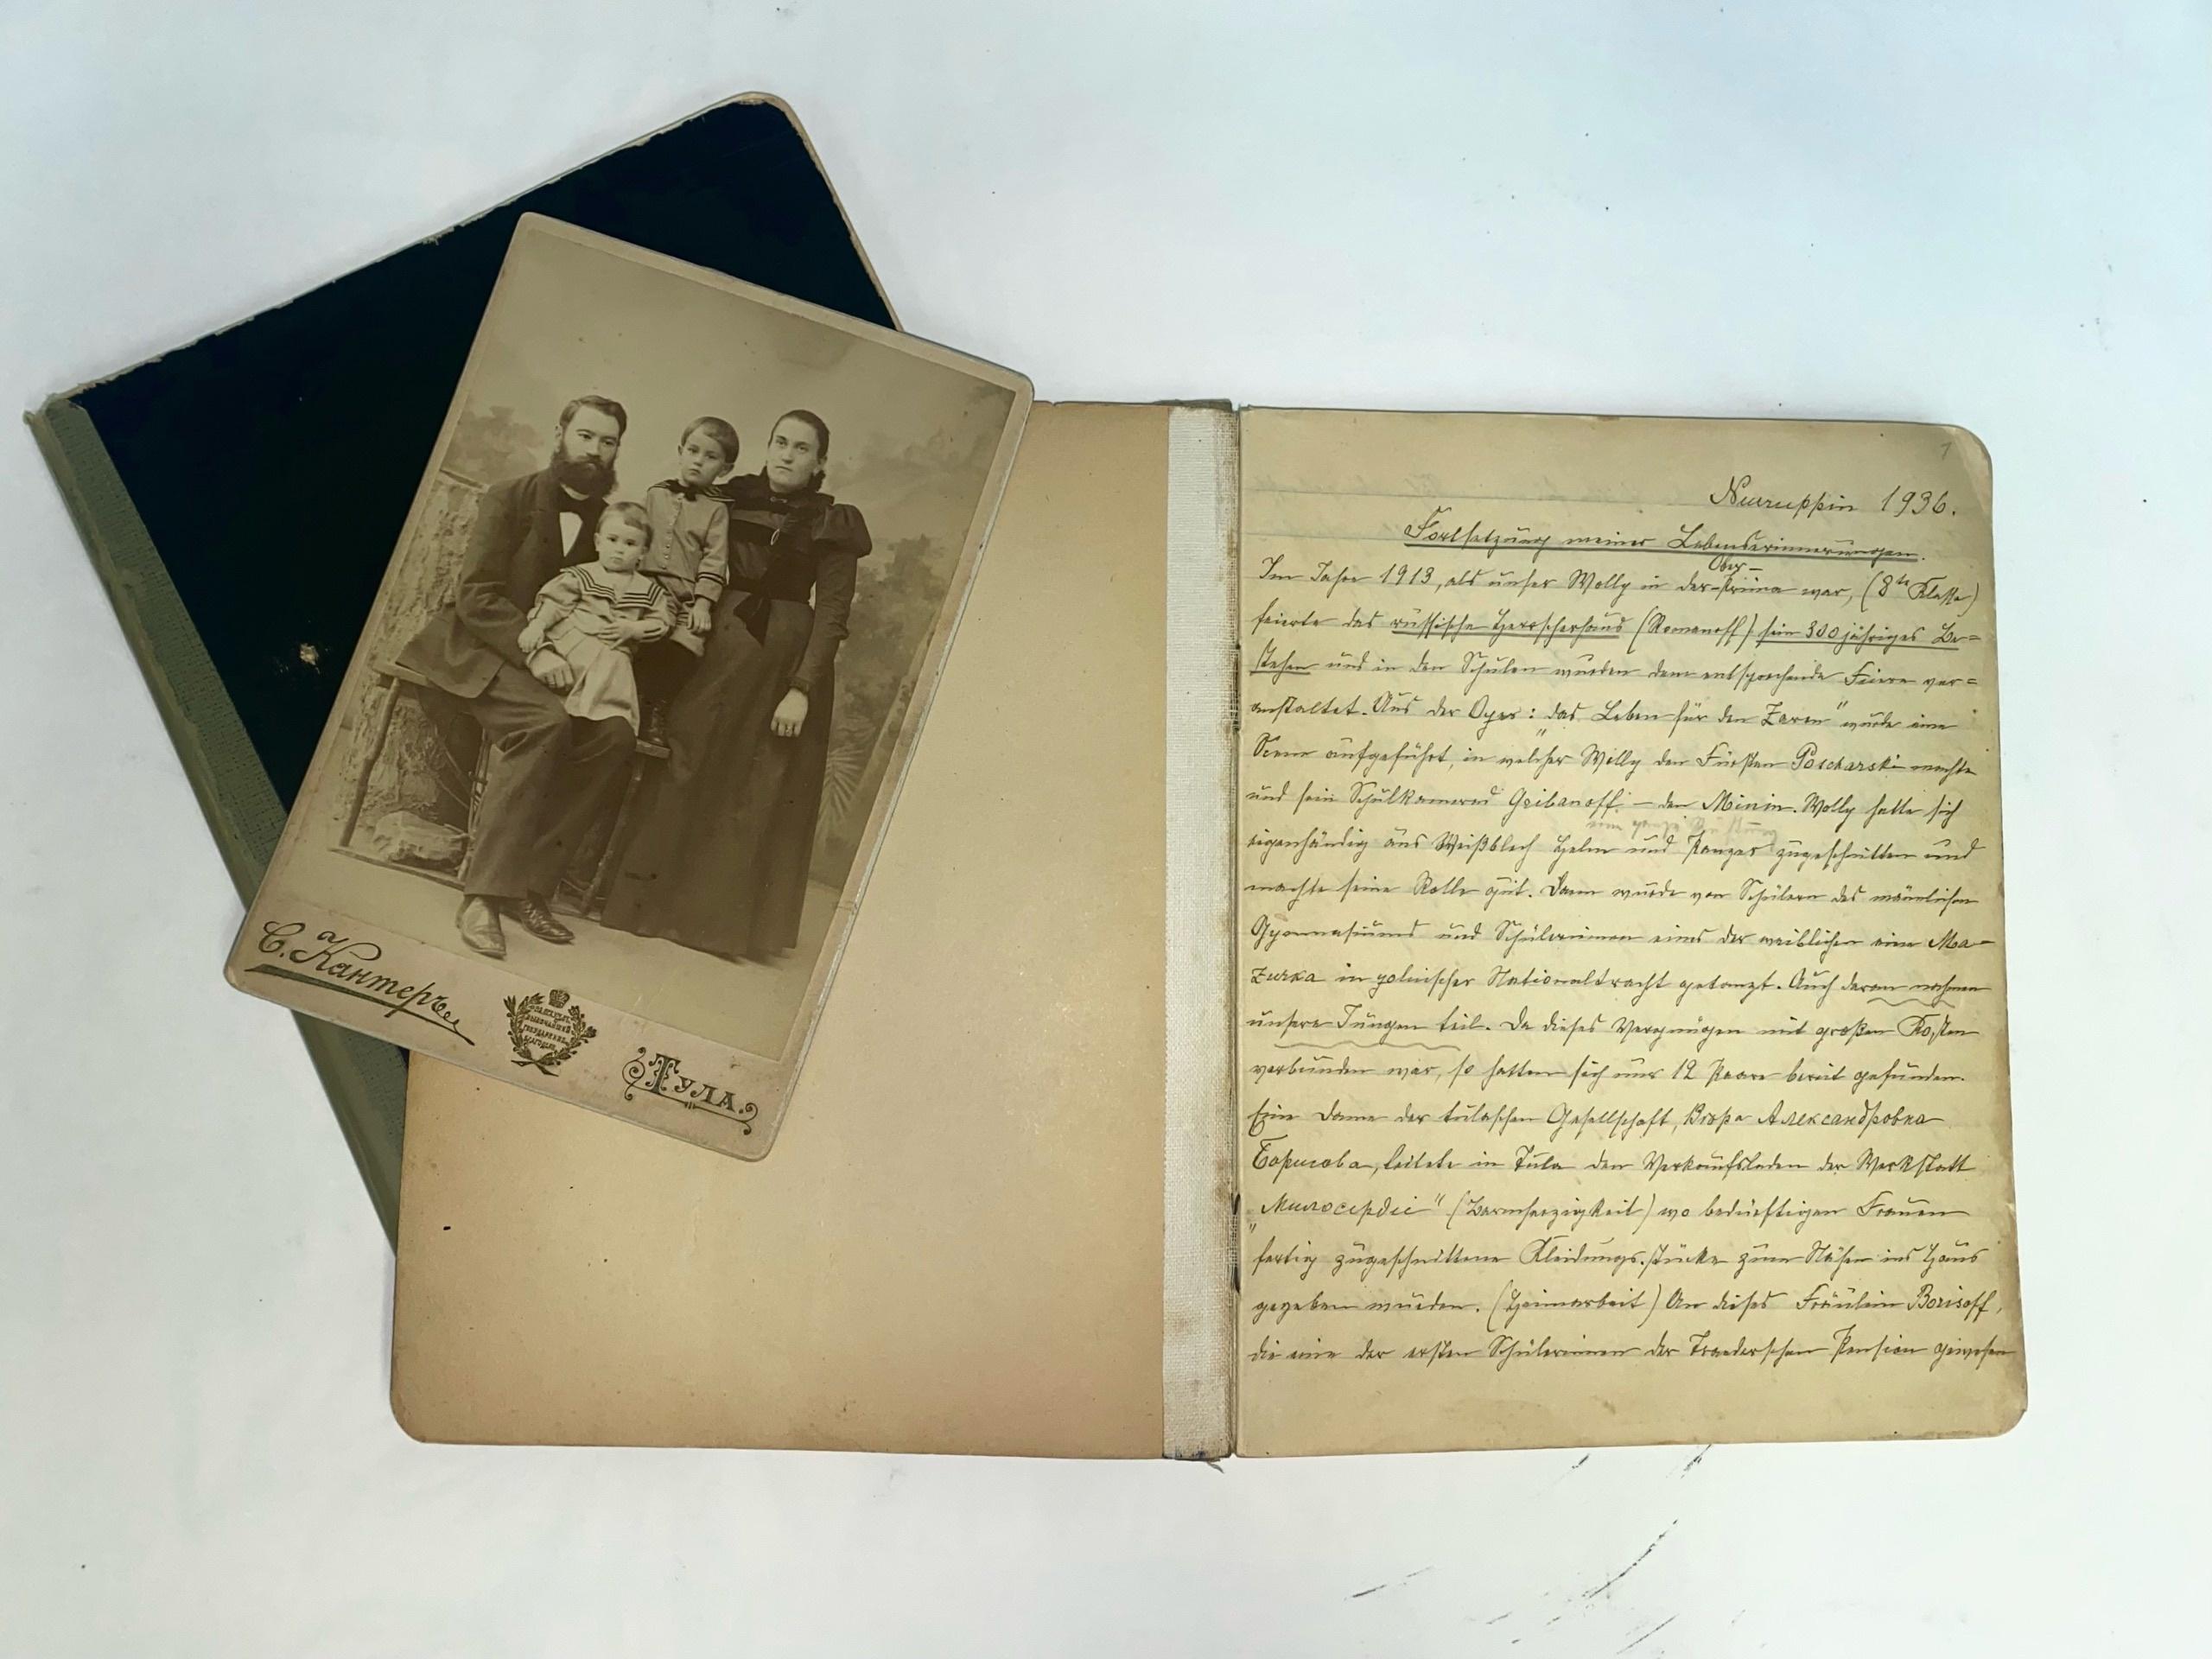 С. Кантеръ
ТУЛА.
1
Neuruppin 1936.
Fortsetzung meiner Lebenserinnerungen.
Ober-
Im Jahre 1913, als unser Willy in der Prima war, (8te Klasse)
feierte das russische Herrscherhaus (Romanoff) sein 300 jähriges Be=
stehen und in den Schulen wurden dem entsprechende Feiern ver=
anstaltet. Aus der Oper: „das Leben für den Zaren" wurde eine
Scene aufgeführt, in welcher Willy den Fürsten Poscharski machte
und sein Schulkamerad Gribanoff – den Minin. Willy hatte sich
eine ganze Rüstung
eigenhändig aus Weißblech Helm und Panzer zugeschnitten und
machte seine Rolle gut. Dann wurde von Schülern des männlichen
Gymnasiums und Schülerinnen eines der weiblichen eine Ma-
zurka in polnischer Nationaltracht getanzt. Auch daran nahmen
unsere Jungen teil. Da dieses Vergnügen mit großen Kosten
verbunden war, so hatten sich nur 12 Paare bereit gefunden.
Eine Dame der tulaschen Gesellschaft, Вѣра Александровна
Борисова, leitete in Tula den Verkaufsladen der Werkstatt
„Милосердіе" (Barmherzigkeit) wo bedürftigen Frauen
fertig zugeschnittene Kleidungsstücke zum Nähen ins Haus
gegeben wurden. (Heimarbeit) An dieses Fräulein Borisoff,
die eine der ersten Schülerinnen der Pension gewesen